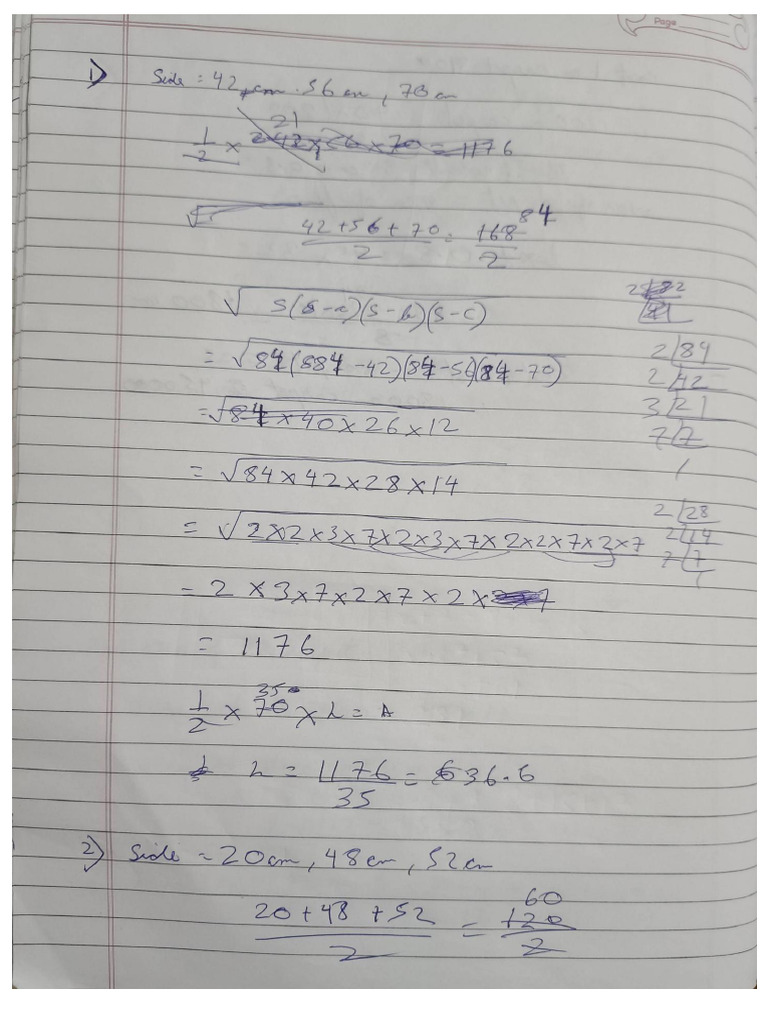 Page
1) Side = 42 cm. 56 cm, 70 cm
21
1/2 × 2 42 × 56 × 70 = 1176
√ (42 + 56 + 70)/2 = 168/2 84
√S(S-a)(S-b)(S-c)
= √84(84-42)(84-56)(84-70)
= √84 × 40 × 26 × 12
= √84 × 42 × 28 × 14
= √2×2×3×7×2×3×7×2×2×7×2×7
= 2 × 3 × 7 × 2 × 7 × 2
= 1176
1/2 × 70 35 × h = A
h = 1176/35 = 36.6
2 | 84
2 | 42
3 | 21
7 | 7
1
2 | 28
2 | 14
7 | 7
1
2) Side = 20cm, 48cm, 52cm
(20 + 48 + 52)/2 = 120/2 60